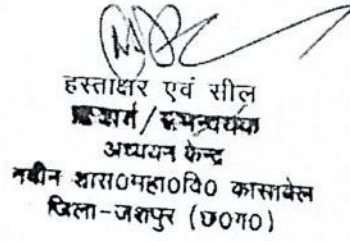 हस्ताक्षर एवं सील
प्राचार्य/समन्वयक
अध्ययन केन्द्र
नवीन शास0महा0वि0 कासाबेल
जिला-जशपुर (छ0ग0)